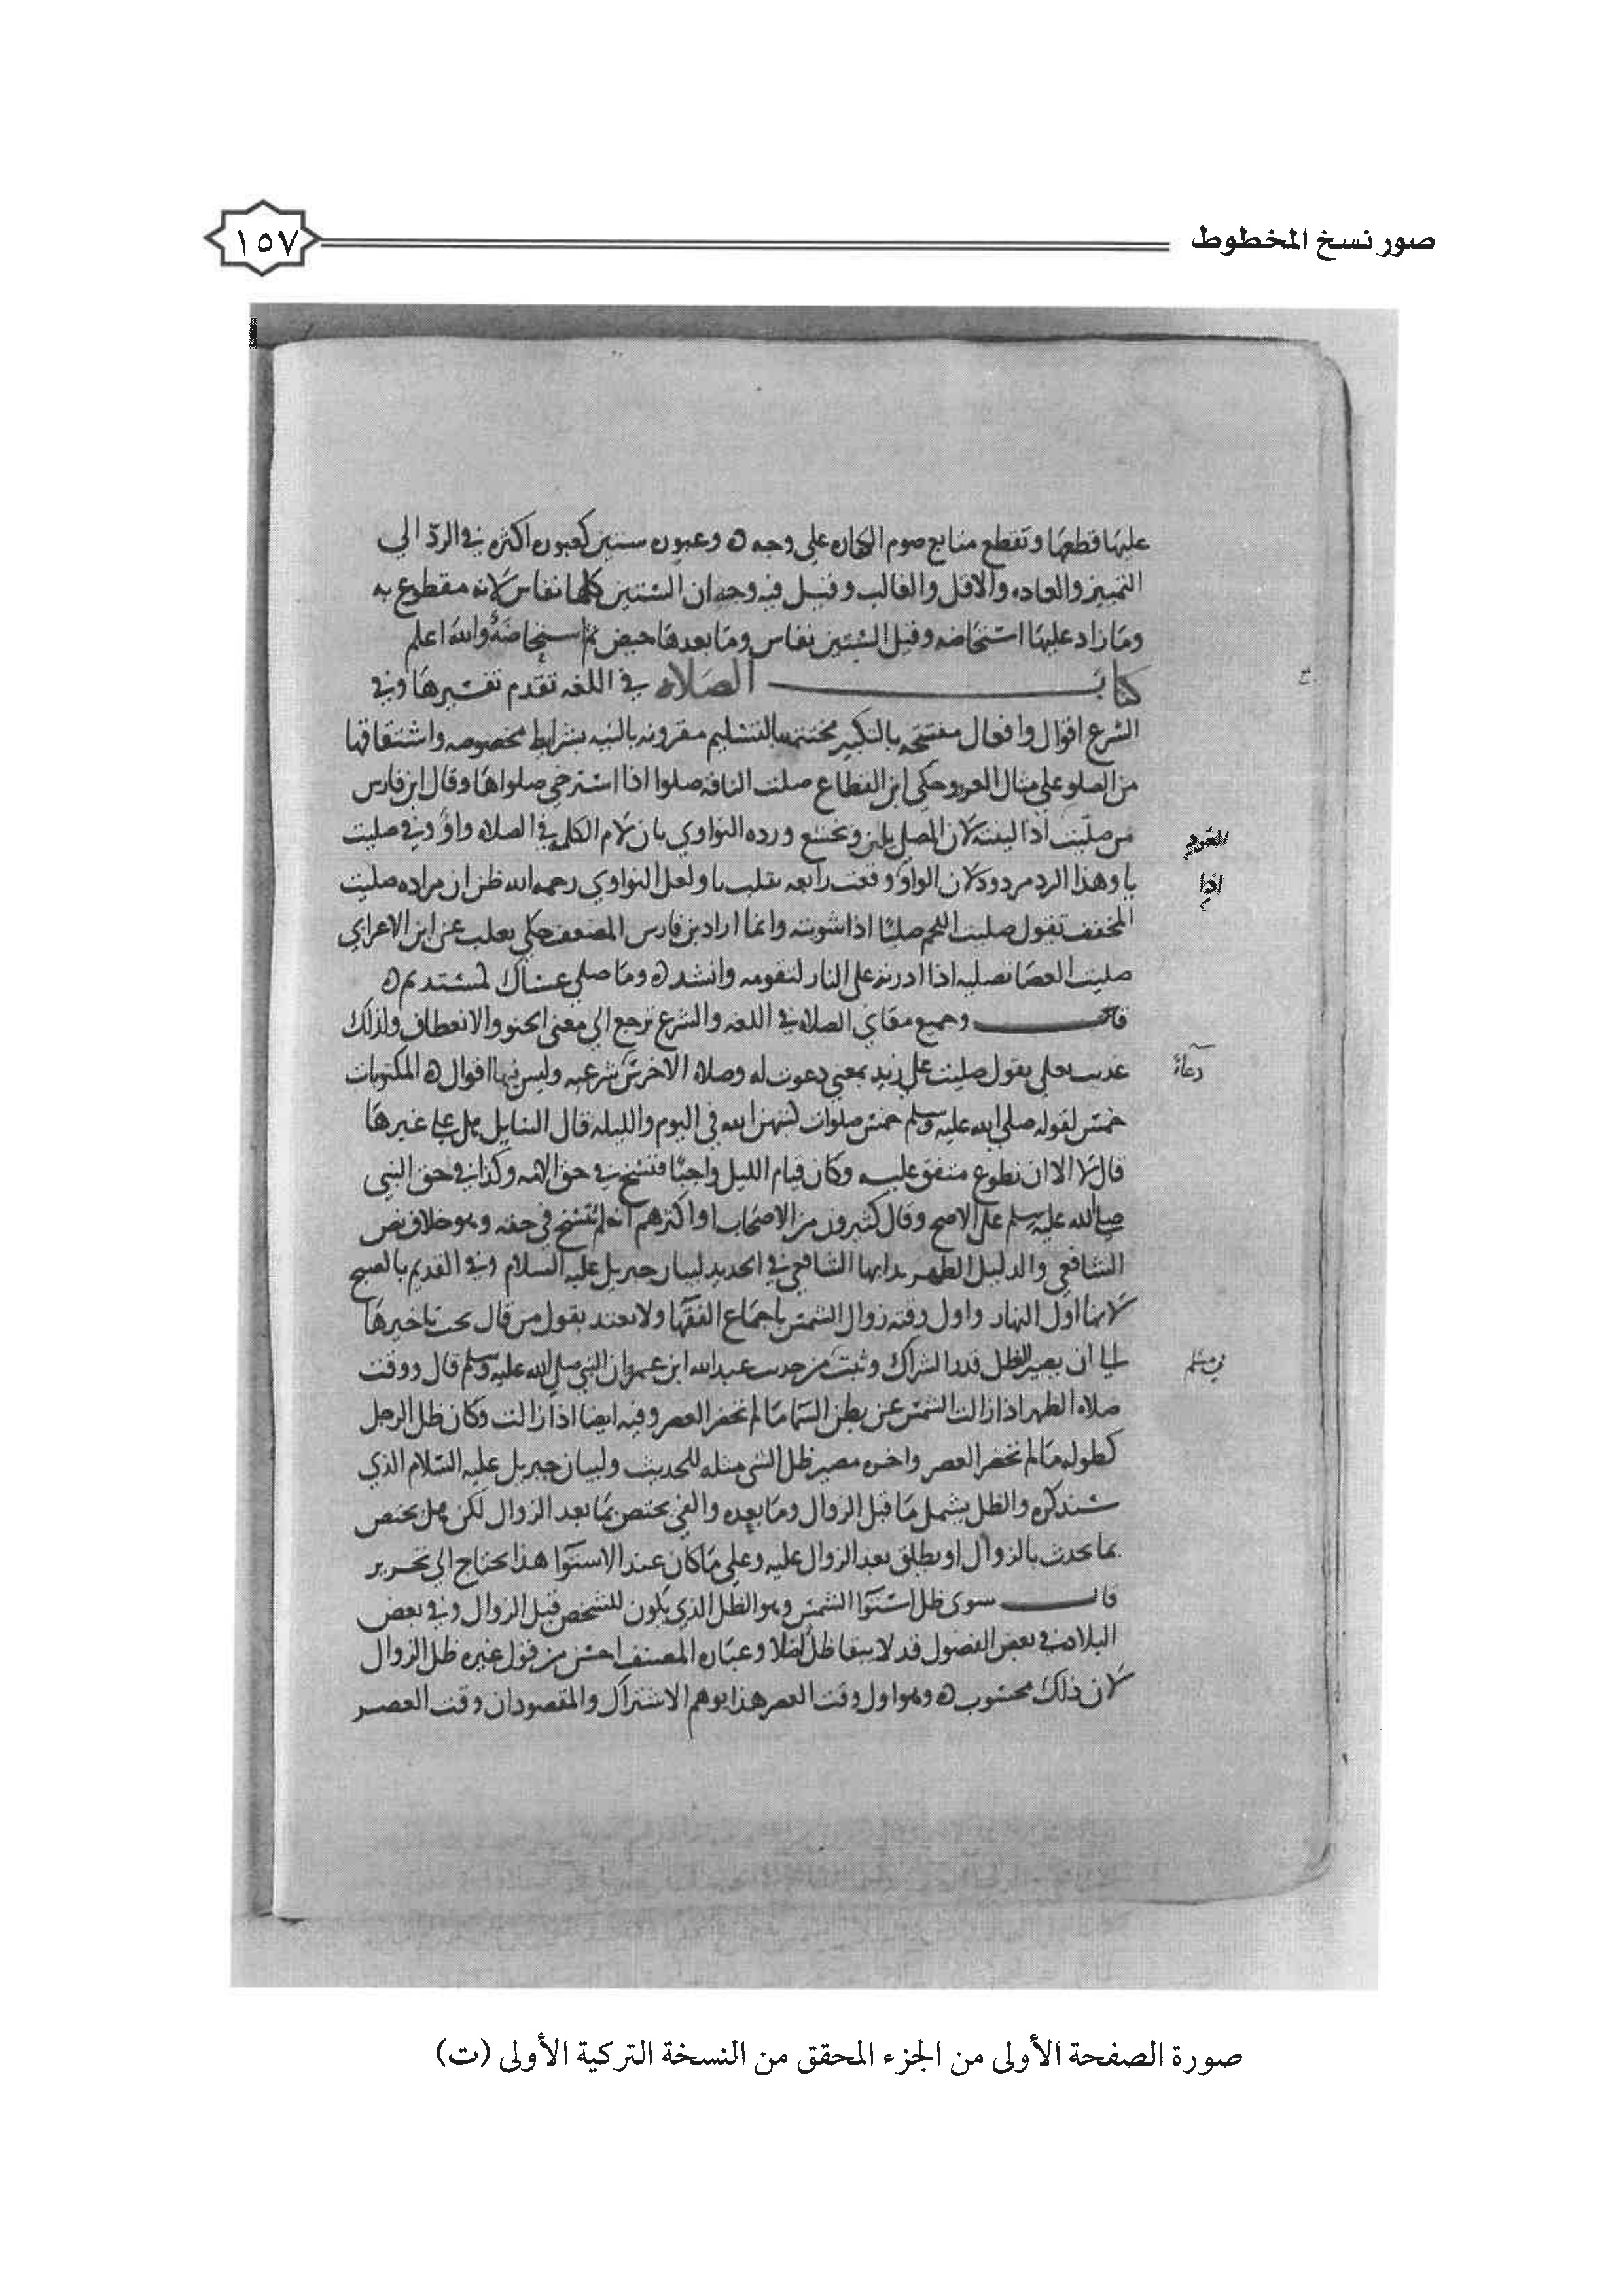 صور نسخ المخطوط
١٥٧
عليها قطعها وتقطع متابع صوم الكفاره على وجه ه وعبور ستين كعبور اكثره في الرد الى
التمييز والعاده والاقل والغالب وقيل فيه وجهان الستين كلها نفاس لانه مقطوع به
وما زاد عليها استحاضه وقيل الستين نفاس وما بعدها حيض ثم استحاضة والله اعلم
كتاب الصلاه في اللغه تقدم تفسيرها وفي
الشرع اقوال وافعال مفتتحه بالتكبير مختتمه بالتسليم مقرونه بالنيه بشرايط مخصوصه واشتقاقها
من الصلو على مثال العرو حكى ابن القطاع صلت الناقه صلوا اذا استرخى صلواها وقال ابن فارس
من صليت اذا لينته لان المصلي يلين ويخشع ورده النواوي بان لام الكلمه في الصلاه واو وفي صليت
العود
يا وهذا الرد مردود لان الواو وقعت رابعه تقلب يا ولعل النواوي رحمه الله ظن ان مراده صليت
اذا
المخفف تقول صليت اللحم صليا اذا شويته وانما اراد بن فارس المضعف حكى ثعلب عن ابن الاعرابي
صليت العصا تصليه اذا ادرته على النار لتقومه وانشد ه وما صلى عصاك كمستديم ه
وجميع معاني الصلاه في اللغه والشرع ترجع الى معنى الحنو والانعطاف ولذلك
عديت بعلى يقول صليت على زيد بمعنى دعوت له وصلاه الاخرس شرعيه وليس فيها اقوال ه المكتوبات
دعاء
خمس لقوله صلى الله عليه وسلم خمس صلوات كتبهن الله في اليوم والليله قال السايل هل علي غيرها
قال لا الا ان تطوع متفق عليه وكان قيام الليل واجبا فنسخ في حق الامه وكذا في حق النبي
صلى الله عليه وسلم على الاصح وقال كثيرون من الاصحاب او اكثرهم انه لم ينسخ في حقه وهو خلاف نص
الشافعي والدليل الظهر بدا بها الشافعي في الجديد لبيان جبريل عليه السلام وفي القديم بالصبح
لانها اول النهار واول وقته زوال الشمس باجماع الفقها ولا يعتد بقول من قال يجب تاخيرها
الى ان يصير الظل قدر الشراك وثبت من حديث عبد الله ابن عمرو ان النبي صلى الله عليه وسلم قال ووقت
في مسلم
صلاه الظهر اذا زالت الشمس عن بطن السما ما لم تحضر العصر وفيه ايضا اذا زالت وكان ظل الرجل
كطوله ما لم تحضر العصر واخره مصير ظل الشي مثله للحديث ولبيان جبريل عليه السلام الذي
سنذكره والظل يشمل ما قبل الزوال وما بعده والفي يختص بما بعد الزوال لكن هل يختص
بما يحدث بالزوال او يطلق بعد الزوال عليه وعلى ما كان عند الاستوا هذا يحتاج الى تحرير
قال سوى ظل استوا الشمس وهو الظل الذي يكون للشخص قبل الزوال وفي بعض
البلاد في بعض الفصول قد لا يبقا ظل اصلا وعباره المصنف احسن من قول غيره ظل الزوال
لان ذلك محسوب ه وهو اول وقت العصر هذا يوهم الاشتراك والمقصود ان وقت العصر
صورة الصفحة الأولى من الجزء المحقق من النسخة التركية الأولى (ت)